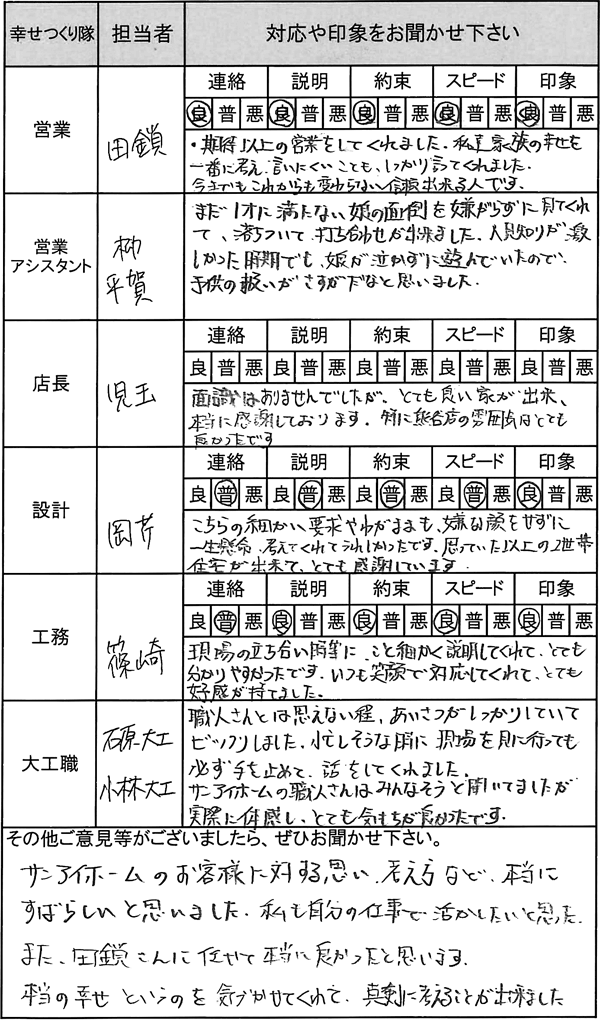 幸せつくり隊 担当者 対応や印象をお聞かせ下さい
営業 田鎖
連絡 説明 約束 スピード 印象
良 普 悪 良 普 悪 良 普 悪 良 普 悪 良 普 悪
・期待以上の営業をしてくれました。私達家族の幸せを
一番に考え、言いにくいことも、しっかり言ってくれました。
今までもこれからも変わらない信頼出来る人です。
営業
アシスタント
柳
平賀
まだ1才に満たない娘の面倒を嫌がらずに見てくれ
て、落ちついて打ち合わせが出来ました。人見知りが激
しかった時期でも、娘が泣かずに遊んでいたので、
子供の扱いがさすがだなと思いました。
店長 児玉
連絡 説明 約束 スピード 印象
良 普 悪 良 普 悪 良 普 悪 良 普 悪 良 普 悪
面識はありませんでしたが、とても良い家が出来、
本当に感謝しております。特に熊谷店の雰囲気はとても
良かったです
設計 岡芹
連絡 説明 約束 スピード 印象
良 普 悪 良 普 悪 良 普 悪 良 普 悪 良 普 悪
こちらの細かい要求やわがままも、嫌な顔をせずに
一生懸命、考えてくれてうれしかったです。思っていた以上の2世帯
住宅が出来て、とても感謝しています。
工務 篠崎
連絡 説明 約束 スピード 印象
良 普 悪 良 普 悪 良 普 悪 良 普 悪 良 普 悪
現場の立ち合い時等に、こと細かく説明してくれて、とても
分かりやすかったです。いつも笑顔で対応してくれて、とても
好感が持てました。
大工職
石原大工
小林大工
職人さんとは思えない程、あいさつがしっかりしていて
ビックリしました。忙しそうな時に現場を見に行っても
必ず手を止めて、話をしてくれました。
サンアイホームの職人さんはみんなそうと聞いてましたが
実際に体感し、とても気持ちが良かったです。
その他ご意見等がございましたら、ぜひお聞かせ下さい。
サンアイホームのお客様に対する思い、考え方など、本当に
すばらしいと思いました。私も自分の仕事で活かしたいと思った。
また、田鎖さんに任せて本当に良かったと思います。
本当の幸せというのを気づかせてくれて、真剣に考えることが出来ました